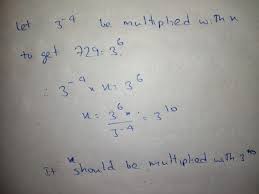 Let 3⁻⁴ be multiplied with x
to get 729 = 3⁶
∴ 3⁻⁴ × x = 3⁶
x = 3⁶ / 3⁻⁴ = 3¹⁰
It should be multiplied with 3¹⁰